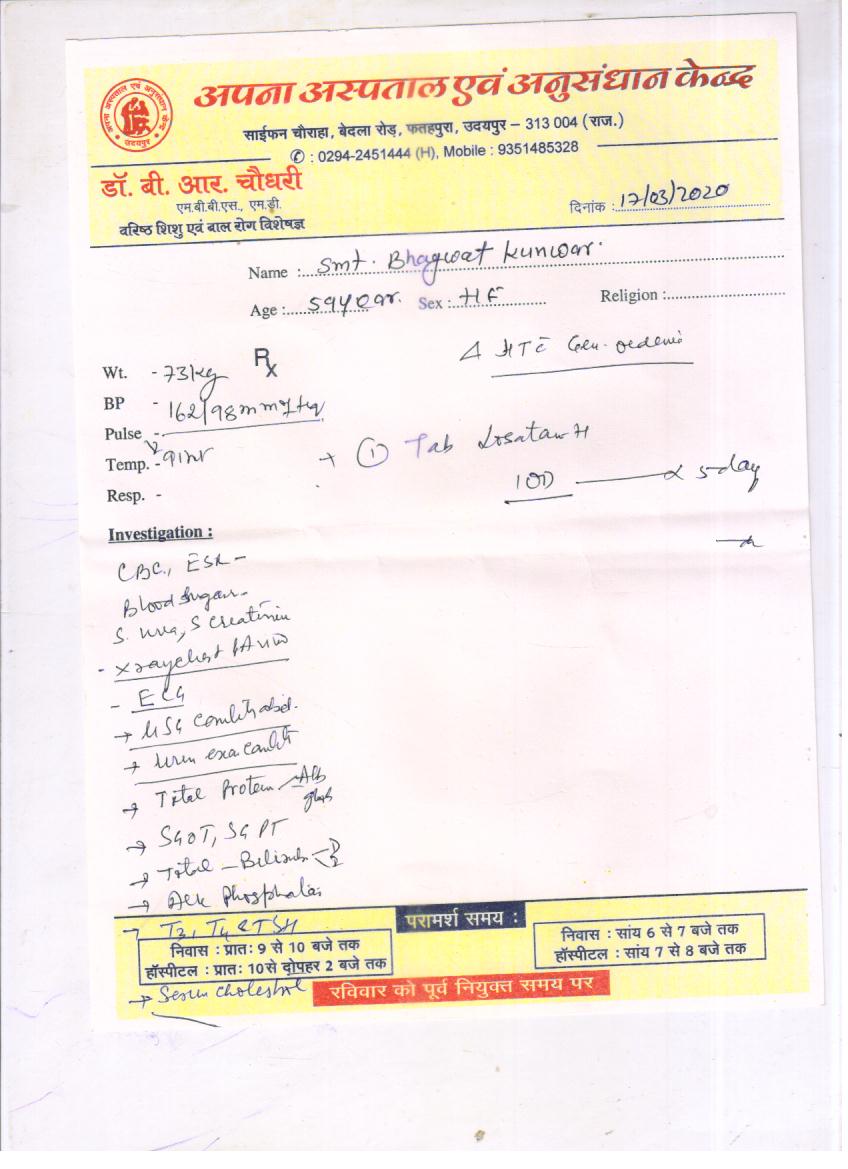 अपना अस्पताल एवं अनुसंधान केन्द्र
साईफन चौराहा, बेदला रोड़, फतहपुरा, उदयपुर – 313 004 (राज.)
✆ : 0294-2451444 (H), Mobile : 9351485328
डॉ. बी. आर. चौधरी
एम.बी.बी.एस., एम.डी.
वरिष्ठ शिशु एवं बाल रोग विशेषज्ञ
दिनांक : 17/03/2020
Name : Smt. Bhagwat Kunwar
Age : 59 year. Sex : HF Religion :
Δ HTC Gen. oedema
Rx
Wt. - 73 kg
BP - 162/98 mm of Hg
Pulse -
Temp. -
Resp. -
+ ① Tab Losatan H
1 OD x 5 day
Investigation :
CBC, ESR -
Blood Sugar -
S. Urea, S Creatinin
- X ray chest PA view
- ECG
→ USG
→
→ Total Protein - Alb
glob
→ SGOT, SGPT
→ Total - Bilirub - D
→ Alk Phosphatas
→ T3, T4 & TSH
→ Serum cholestrol
परामर्श समय :
निवास : प्रातः 9 से 10 बजे तक
हॉस्पीटल : प्रातः 10 से दोपहर 2 बजे तक
निवास : सांय 6 से 7 बजे तक
हॉस्पीटल : सांय 7 से 8 बजे तक
रविवार को पूर्व नियुक्त समय पर